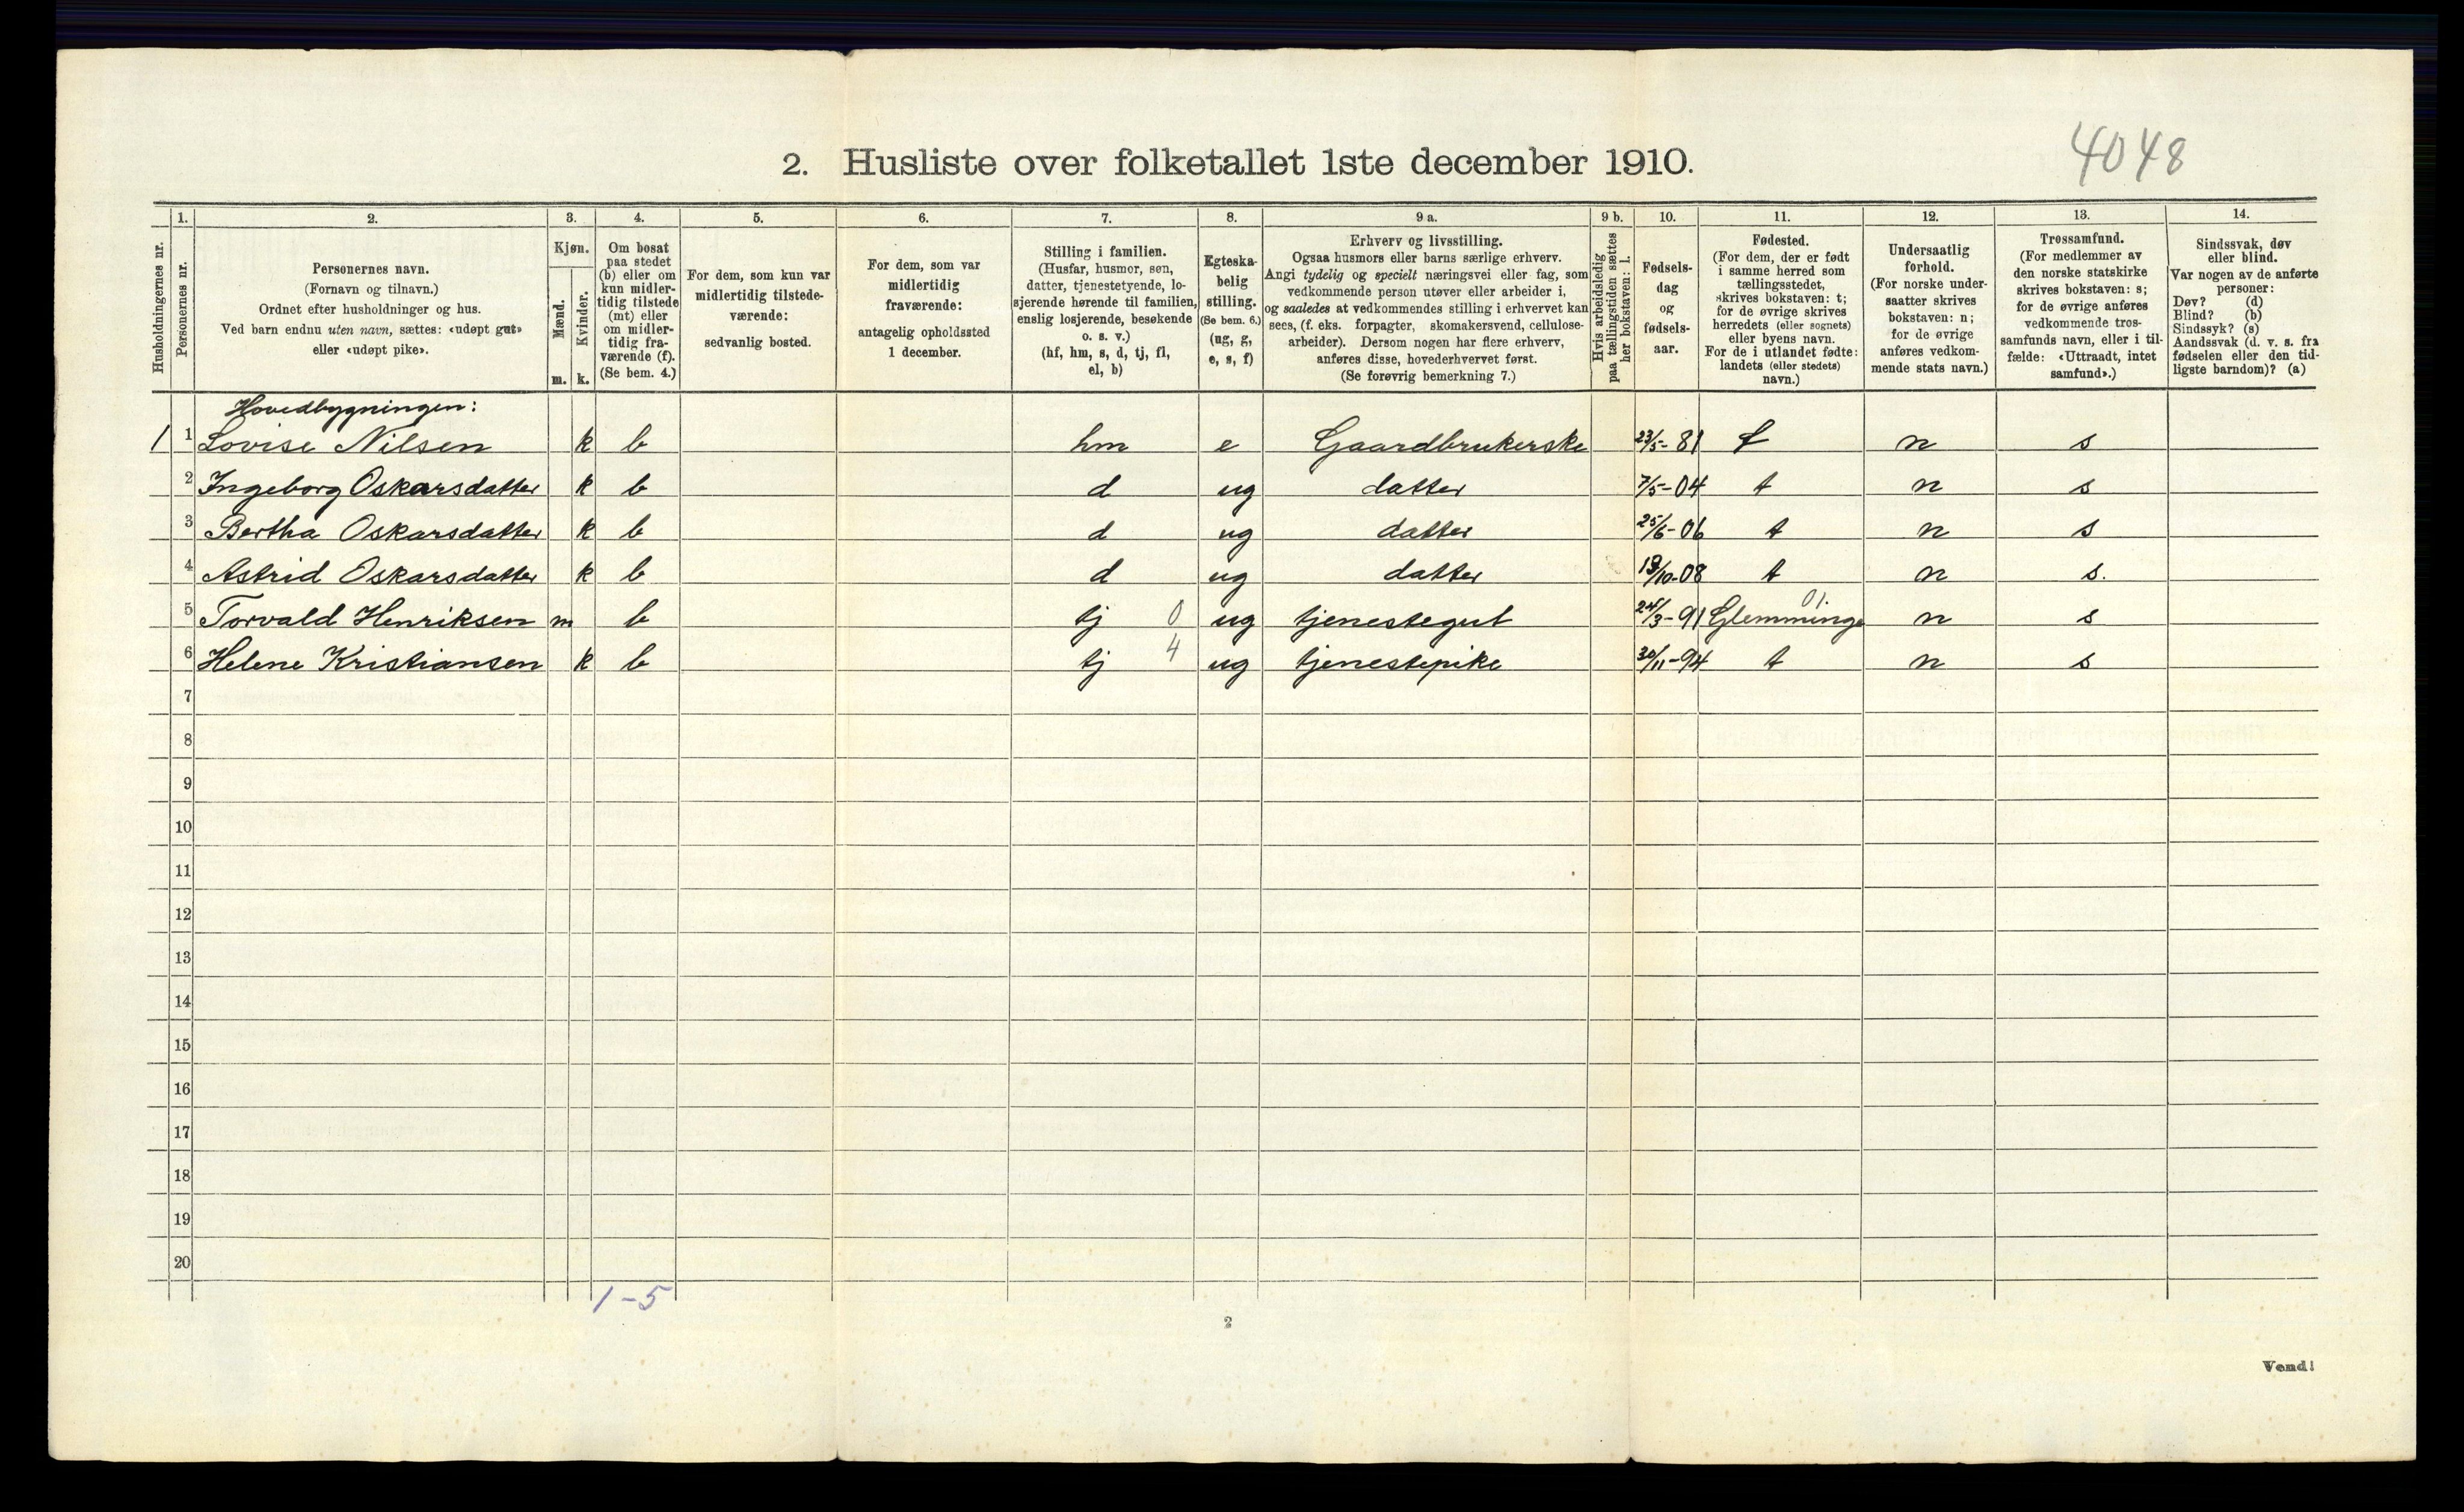 4048
2. Husliste over folketallet 1ste december 1910.
Husholdningernes nr.
1.
Personernes nr.
2.
Personernes navn.
(Fornavn og tilnavn.)
Ordnet efter husholdninger og hus.
Ved barn endnu uten navn, sættes: «udøpt gut»
eller «udøpt pike».
3.
Kjøn.
Mænd.
Kvinder.
m. k.
4.
Om bosat
paa stedet
(b) eller om
kun midler-
tidig tilstede
(mt) eller
om midler-
tidig fra-
værende (f).
(Se bem. 4.)
5.
For dem, som kun var
midlertidig tilstede-
værende:
sedvanlig bosted.
6.
For dem, som var
midlertidig
fraværende:
antagelig opholdssted
1 december.
7.
Stilling i familien.
(Husfar, husmor, søn,
datter, tjenestetyende, lo-
sjerende hørende til familien,
enslig losjerende, besøkende
o. s. v.)
(hf, hm, s, d, tj, fl,
el, b)
8.
Egteska-
belig
stilling.
(Se bem. 6.)
(ug, g,
e, s, f)
9 a.
Erhverv og livsstilling.
Ogsaa husmors eller barns særlige erhverv.
Angi tydelig og specielt næringsvei eller fag, som
vedkommende person utøver eller arbeider i,
og saaledes at vedkommendes stilling i erhvervet kan
sees, (f. eks. forpagter, skomakersvend, cellulose-
arbeider). Dersom nogen har flere erhverv,
anføres disse, hovederhvervet først.
(Se forøvrig bemerkning 7.)
9 b.
Hvis arbeidsledig
paa tællingstiden sættes
her bokstaven: l.
10.
Fødsels-
dag
og
fødsels-
aar.
11.
Fødested.
(For dem, der er født
i samme herred som
tællingsstedet,
skrives bokstaven: t;
for de øvrige skrives
herredets (eller sognets)
eller byens navn.
For de i utlandet fødte:
landets (eller stedets)
navn.)
12.
Undersaatlig
forhold.
(For norske under-
saatter skrives
bokstaven: n;
for de øvrige
anføres vedkom-
mende stats navn.)
13.
Trossamfund.
(For medlemmer av
den norske statskirke
skrives bokstaven: s;
for de øvrige anføres
vedkommende tros-
samfunds navn, eller i til-
fælde: «Uttraadt, intet
samfund».)
14.
Sindssvak, døv
eller blind.
Var nogen av de anførte
personer:
Døv? (d)
Blind? (b)
Sindssyk? (s)
Aandssvak (d. v. s. fra
fødselen eller den tid-
ligste barndom)? (a)
Hovedbygningen:
1 1 Lovise Nilsen k b hm e Gaardbrukerske 23/5-81 t n s
2 Ingeborg Oskarsdatter k b d ug datter 7/5-04 t n s
3 Bertha Oskarsdatter k b d ug datter 25/6-06 t n s
4 Astrid Oskarsdatter k b d ug datter /10-08 t n s.
01.
5 Torvald Henriksen m b tj 0 ug tjenestegut 24/3-91 Glemminge n s
6 Helene Kristiansen k b tj 4 ug tjenestepike 30/11-94 t n s
7
8
9
10
11
12
13
14
15
16
17
18
19
20
1-5
2
Vend!